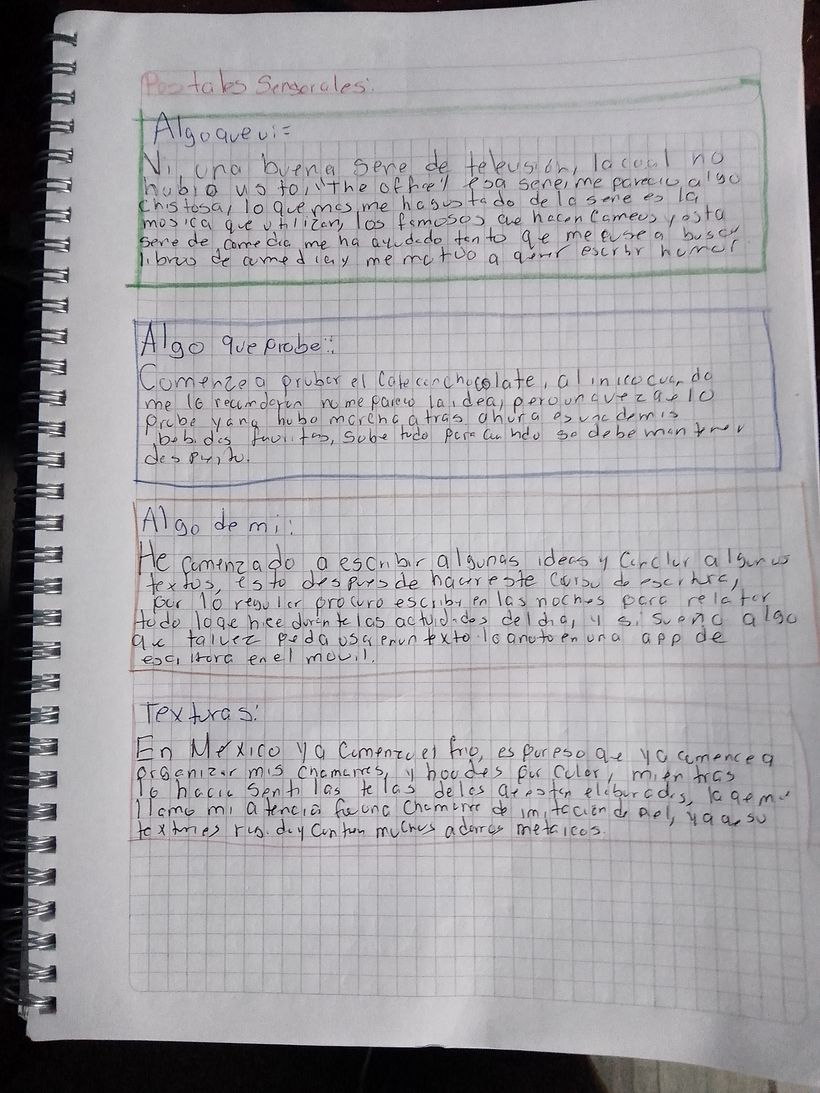 Postales Sensorales:
Algo que vi:
Vi, una buena serie de televisión, la cual no
hubia visto, "the office" esa serie, me parecio algo
chistosa, lo que mas me ha gustado de la serie es la
mosica que utilizan, los famosos que hacen Cameos y esta
serie de comedia me ha ayudado tanto que me puse a buscar
libros de comedia y me motivo a querer escribir humor
Algo que probe:
Comenze a probar el Cafe con chocolate, al inicio cuando
me lo recomdaron no me parecio la idea, pero una vez que lo
probe ya no hubo marcha atras ahora es una de mis
bebidas favoritas, sobre todo para cuando se debe mantener
despierto.
Algo de mi:
He comenzado a escribir algunas ideas y Concluir algunos
textos, esto despues de hacer este Curso de escritura,
por lo regular procuro escribir en las noches para relatar
todo lo que hice durante las actividades del dia, y si sueno algo
que talvez pueda usar en un texto lo anoto en una app de
escritora en el movil.
Texturas:
En México ya Comenzo el frio, es por eso que ya comence a
organizar mis chamarras, y por color, mientras
lo hacia senti las telas de las que estan elaborados, la que me
llamo mi atención fue una chamarra de imitación de piel, ya que su
y con muchos adornos metalicos.